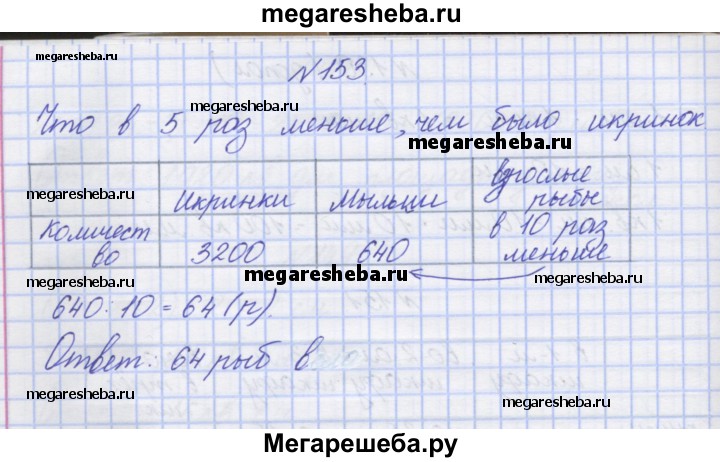 megaresheba.ru
megaresheba.ru
№153.
megaresheba.ru
Что в 5 раз меньше, чем было икринок
megaresheba.ru
Икринки Мыльши взрослые рыбы
Количество 3200 640 в 10 раз меньше
megaresheba.ru
megaresheba.ru
640 : 10 = 64 (р).
Ответ: 64 рыб в
megaresheba.ru
megaresheba.ru
Мегарешеба.ру